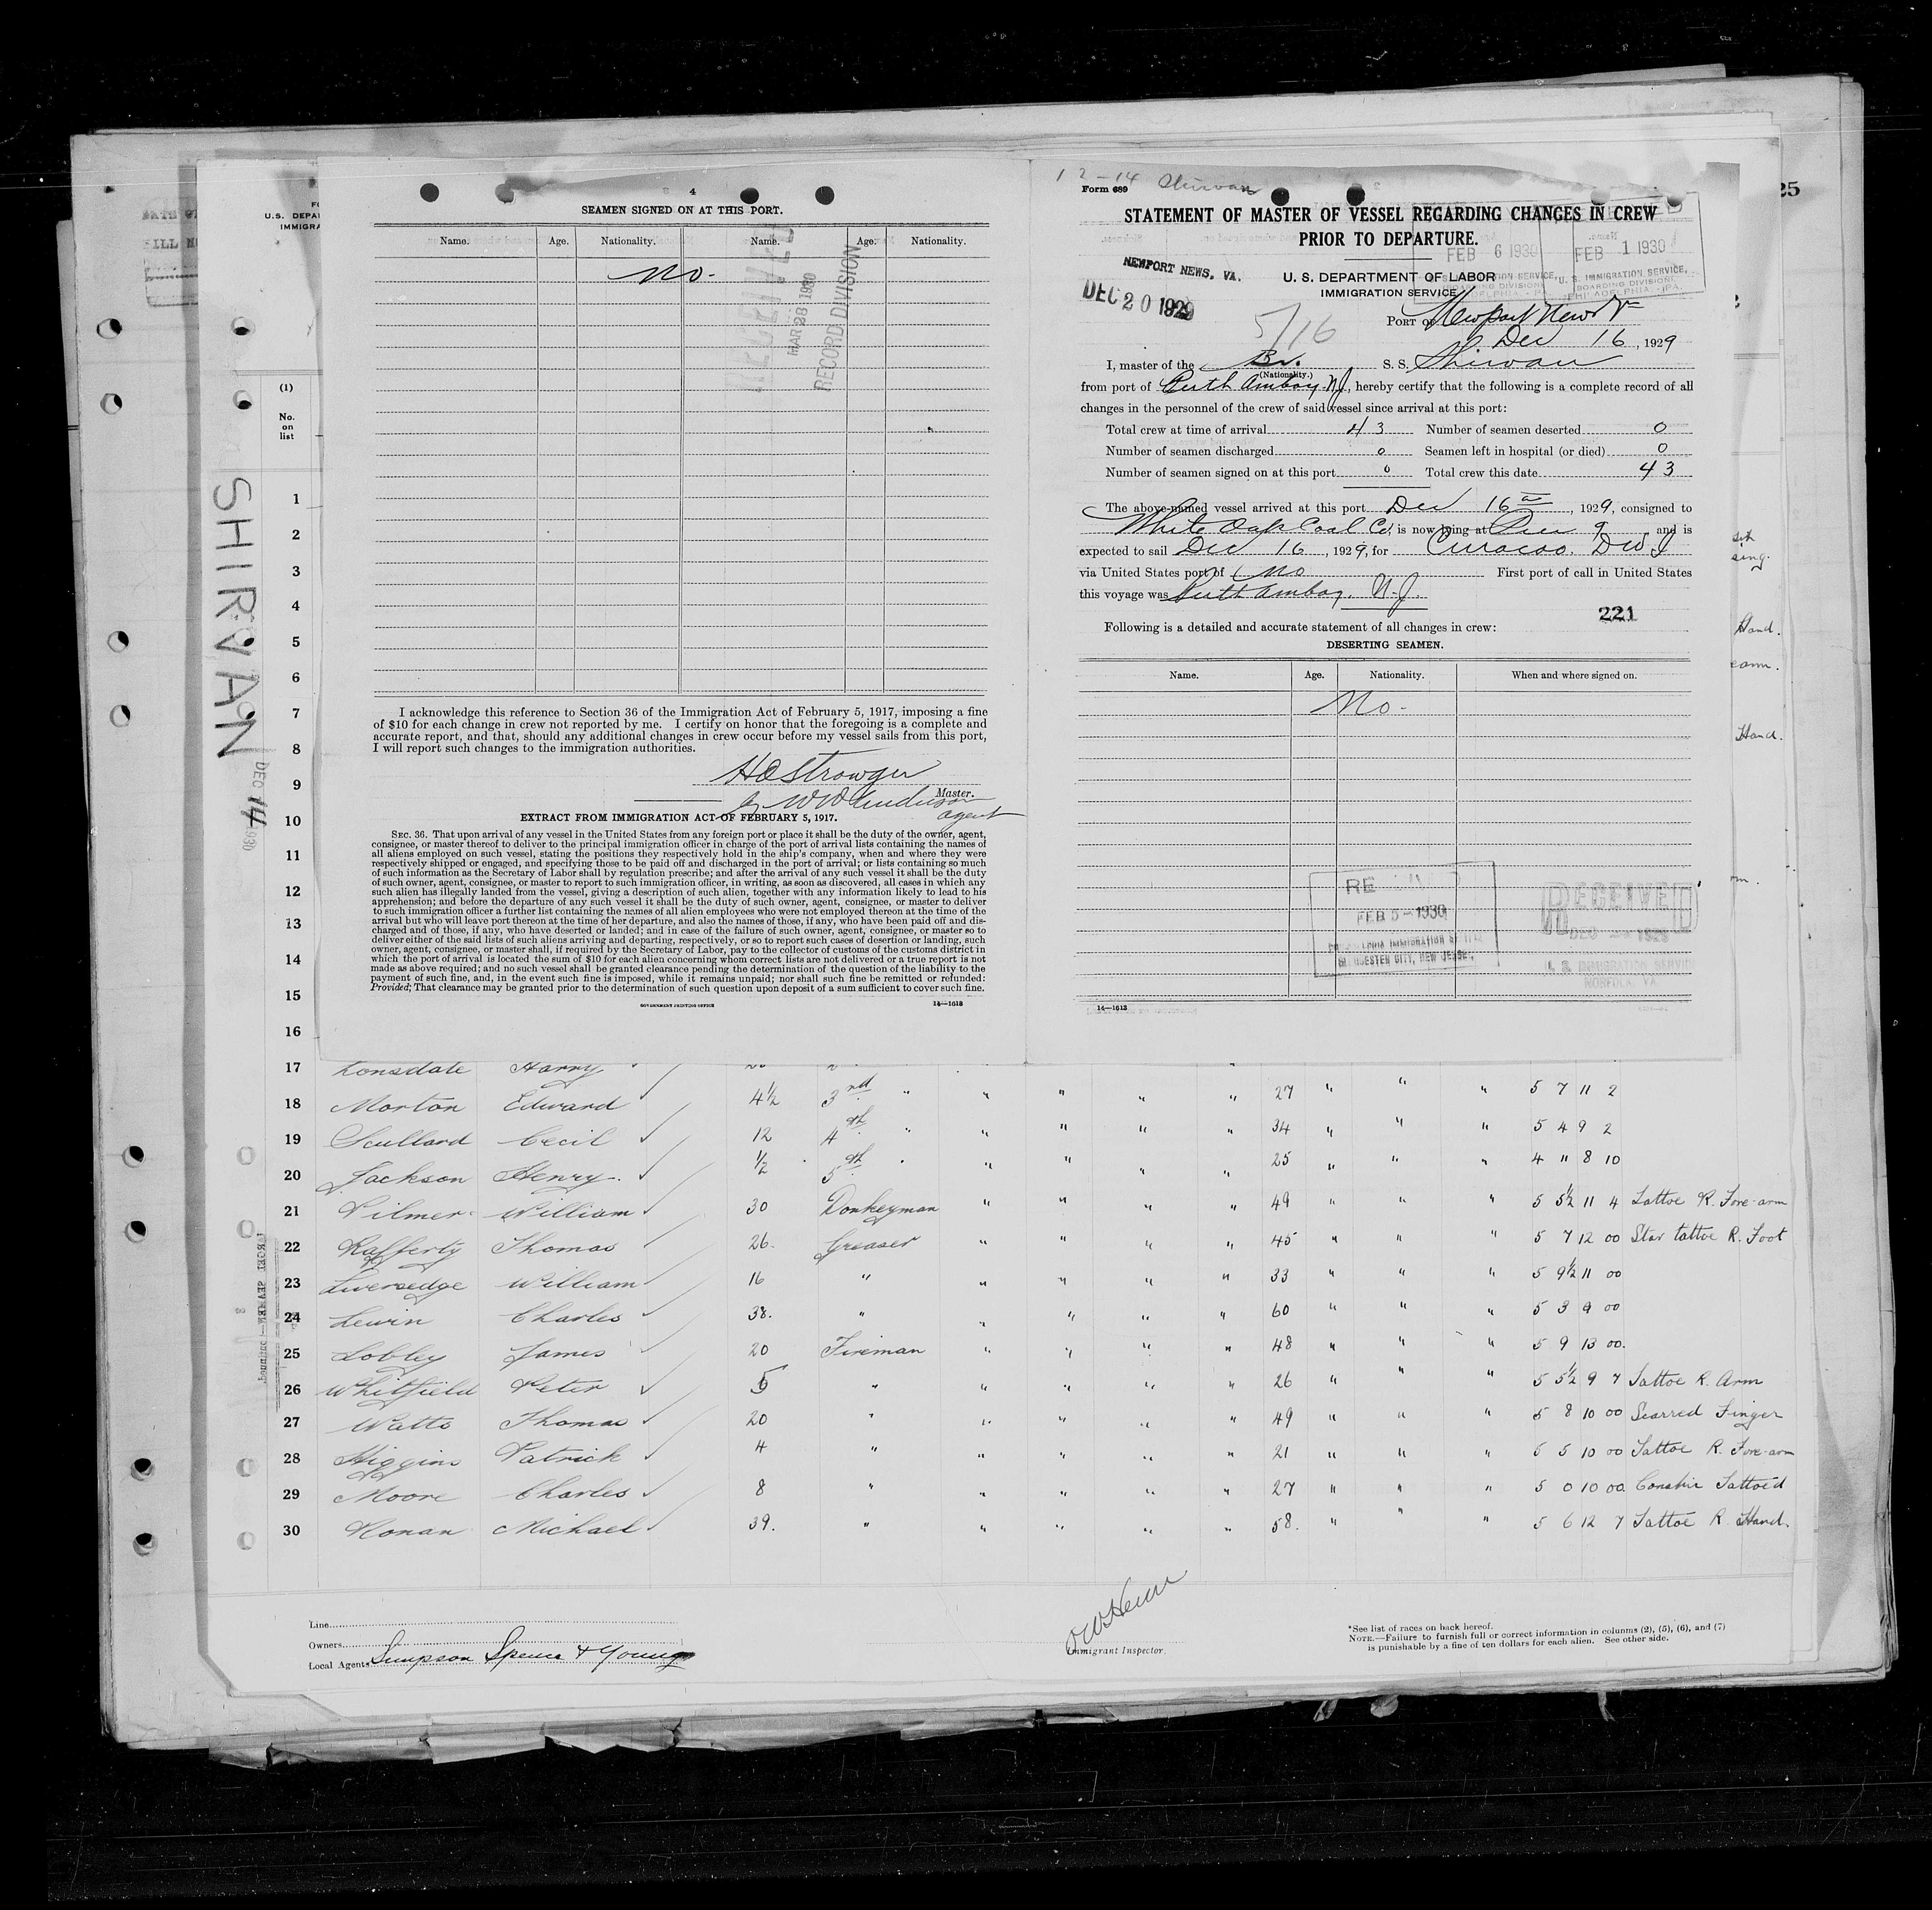 25
SHIRVAN
DEC 14 1930
U.S. DEPA
IMMIGRA
(1)
No.
on
list
4
SEAMEN SIGNED ON AT THIS PORT.
Name. Age. Nationality. Name. Age. Nationality.
No-
RECEIVED
MAR 28 1930
RECORD DIVISION
I acknowledge this reference to Section 36 of the Immigration Act of February 5, 1917, imposing a fine
of $10 for each change in crew not reported by me. I certify on honor that the foregoing is a complete and
accurate report, and that, should any additional changes in crew occur before my vessel sails from this port,
I will report such changes to the immigration authorities.
H O Strowger
Master.
Agent
EXTRACT FROM IMMIGRATION ACT OF FEBRUARY 5, 1917.
SEC. 36. That upon arrival of any vessel in the United States from any foreign port or place it shall be the duty of the owner, agent,
consignee, or master thereof to deliver to the principal immigration officer in charge of the port of arrival lists containing the names of
all aliens employed on such vessel, stating the positions they respectively hold in the ship's company, when and where they were
respectively shipped or engaged, and specifying those to be paid off and discharged in the port of arrival; or lists containing so much
of such information as the Secretary of Labor shall by regulation prescribe; and after the arrival of any such vessel it shall be the duty
of such owner, agent, consignee, or master to report to such immigration officer, in writing, as soon as discovered, all cases in which any
such alien has illegally landed from the vessel, giving a description of such alien, together with any information likely to lead to his
apprehension; and before the departure of any such vessel it shall be the duty of such owner, agent, consignee, or master to deliver
to such immigration officer a further list containing the names of all alien employees who were not employed thereon at the time of the
arrival but who will leave port thereon at the time of her departure, and also the names of those, if any, who have been paid off and dis-
charged and of those, if any, who have deserted or landed; and in case of the failure of such owner, agent, consignee, or master so to
deliver either of the said lists of such aliens arriving and departing, respectively, or so to report such cases of desertion or landing, such
owner, agent, consignee, or master shall, if required by the Secretary of Labor, pay to the collector of customs of the customs district in
which the port of arrival is located the sum of $10 for each alien concerning whom correct lists are not delivered or a true report is not
made as above required; and no such vessel shall be granted clearance pending the determination of the question of the liability to the
payment of such fine, and, in the event such fine is imposed, while it remains unpaid; nor shall such fine be remitted or refunded:
Provided, That clearance may be granted prior to the determination of such question upon deposit of a sum sufficient to cover such fine.
GOVERNMENT PRINTING OFFICE 14—1613
12-14 Shirvan
Form 689
STATEMENT OF MASTER OF VESSEL REGARDING CHANGES IN CREW
PRIOR TO DEPARTURE.
FEB 6 1930
FEB 1 1930
U. S. IMMIGRATION SERVICE,
BOARDING DIVISION,
PHILADELPHIA, PA.
NEWPORT NEWS, VA.
DEC 20 1929
U. S. DEPARTMENT OF LABOR
IMMIGRATION SERVICE
5/16
PORT OF Newport News Va
Dec 16, 1929
I, master of the Br. S. S. Shirvan
(Nationality.)
from port of Perth Amboy. N.J., hereby certify that the following is a complete record of all
changes in the personnel of the crew of said vessel since arrival at this port:
Total crew at time of arrival 43 Number of seamen deserted 0
Number of seamen discharged 0 Seamen left in hospital (or died) 0
Number of seamen signed on at this port 0 Total crew this date 43
The above-named vessel arrived at this port Dec 16, 1929, consigned to
White Oak Coal Co, is now lying at Pier 9, and is
expected to sail Dec 16, 1929, for Curacao. DWI
via United States port of No First port of call in United States
this voyage was Perth Amboy. N.J.
221
Following is a detailed and accurate statement of all changes in crew:
DESERTING SEAMEN.
Name. Age. Nationality. When and where signed on.
No-
FEB 5-1930
GLOUCESTER CITY, NEW JERSEY.
RECEIVED
DEC 1929
U. S. IMMIGRATION SERVICE
NORFOLK, VA.
14—1613
Hand.
Hand.
1
2
3
4
5
6
7
8
9
10
11
12
13
14
15
16
17 Lonsdale Harry
18 Morton Edward 4½ 3rd " " " " " 27 " " " 5 7 11 2
19 Scullard Cecil 12 4th " " " " " 34 " " " 5 4 9 2
20 Jackson Henry. ½ 5th " " " " " 25 " " " 4 11 8 10
21 Pilmer William 30 Donkeyman " " " " 49 " " " 5 5½ 11 4 Tattoe R. Fore-arm
22 Rafferty Thomas 26. Greaser " " " " 45 " " " 5 7 12 00 Star tattoe R. Foot
23 Liversedge William 16 " " " " " 33 " " " 5 9½ 11 00
24 Lewin Charles 38. " " " " " 60 " " " 5 3 9 00
25 Lobley James 20 Fireman " " " " 48 " " " 5 9 13 00.
26 Whitfield Peter 5 " " " " " 26 " " " 5 5½ 9 7 Tattoe R. Arm
27 Watts Thomas 20 " " " " " 49 " " " 5 8 10 00 Scarred Finger
28 Higgins Patrick 4 " " " " " 21 " " " 5 5 10 00 Tattoe R. Fore-arm
29 Moore Charles 8 " " " " " 27 " " " 5 0 10 00. Tattoe'd
30 Ronan Michael 39. " " " " " 58. " " " 5 6 12 7 Tattoe R. Hand.
Line
Owners
Local Agents Simpson Spence & Young
Immigrant Inspector.
*See list of races on back hereof.
NOTE.—Failure to furnish full or correct information in columns (2), (5), (6), and (7)
is punishable by a fine of ten dollars for each alien. See other side.